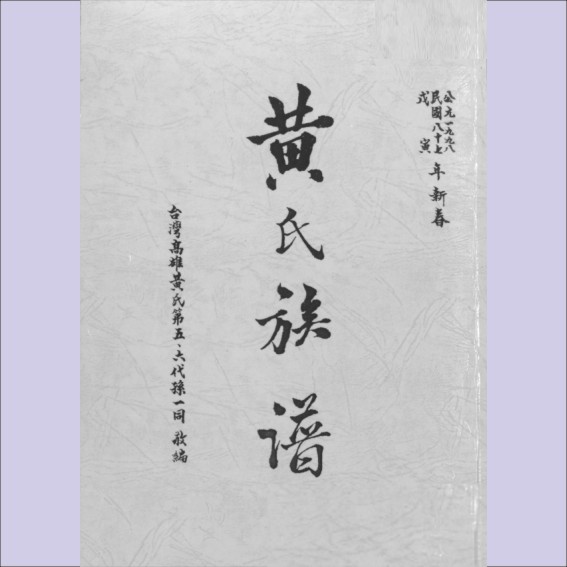 公元一九九八
民國八十七
戊寅
年新春
黄氏族譜
台灣高雄黃氏第五、六代孫一同 敬編